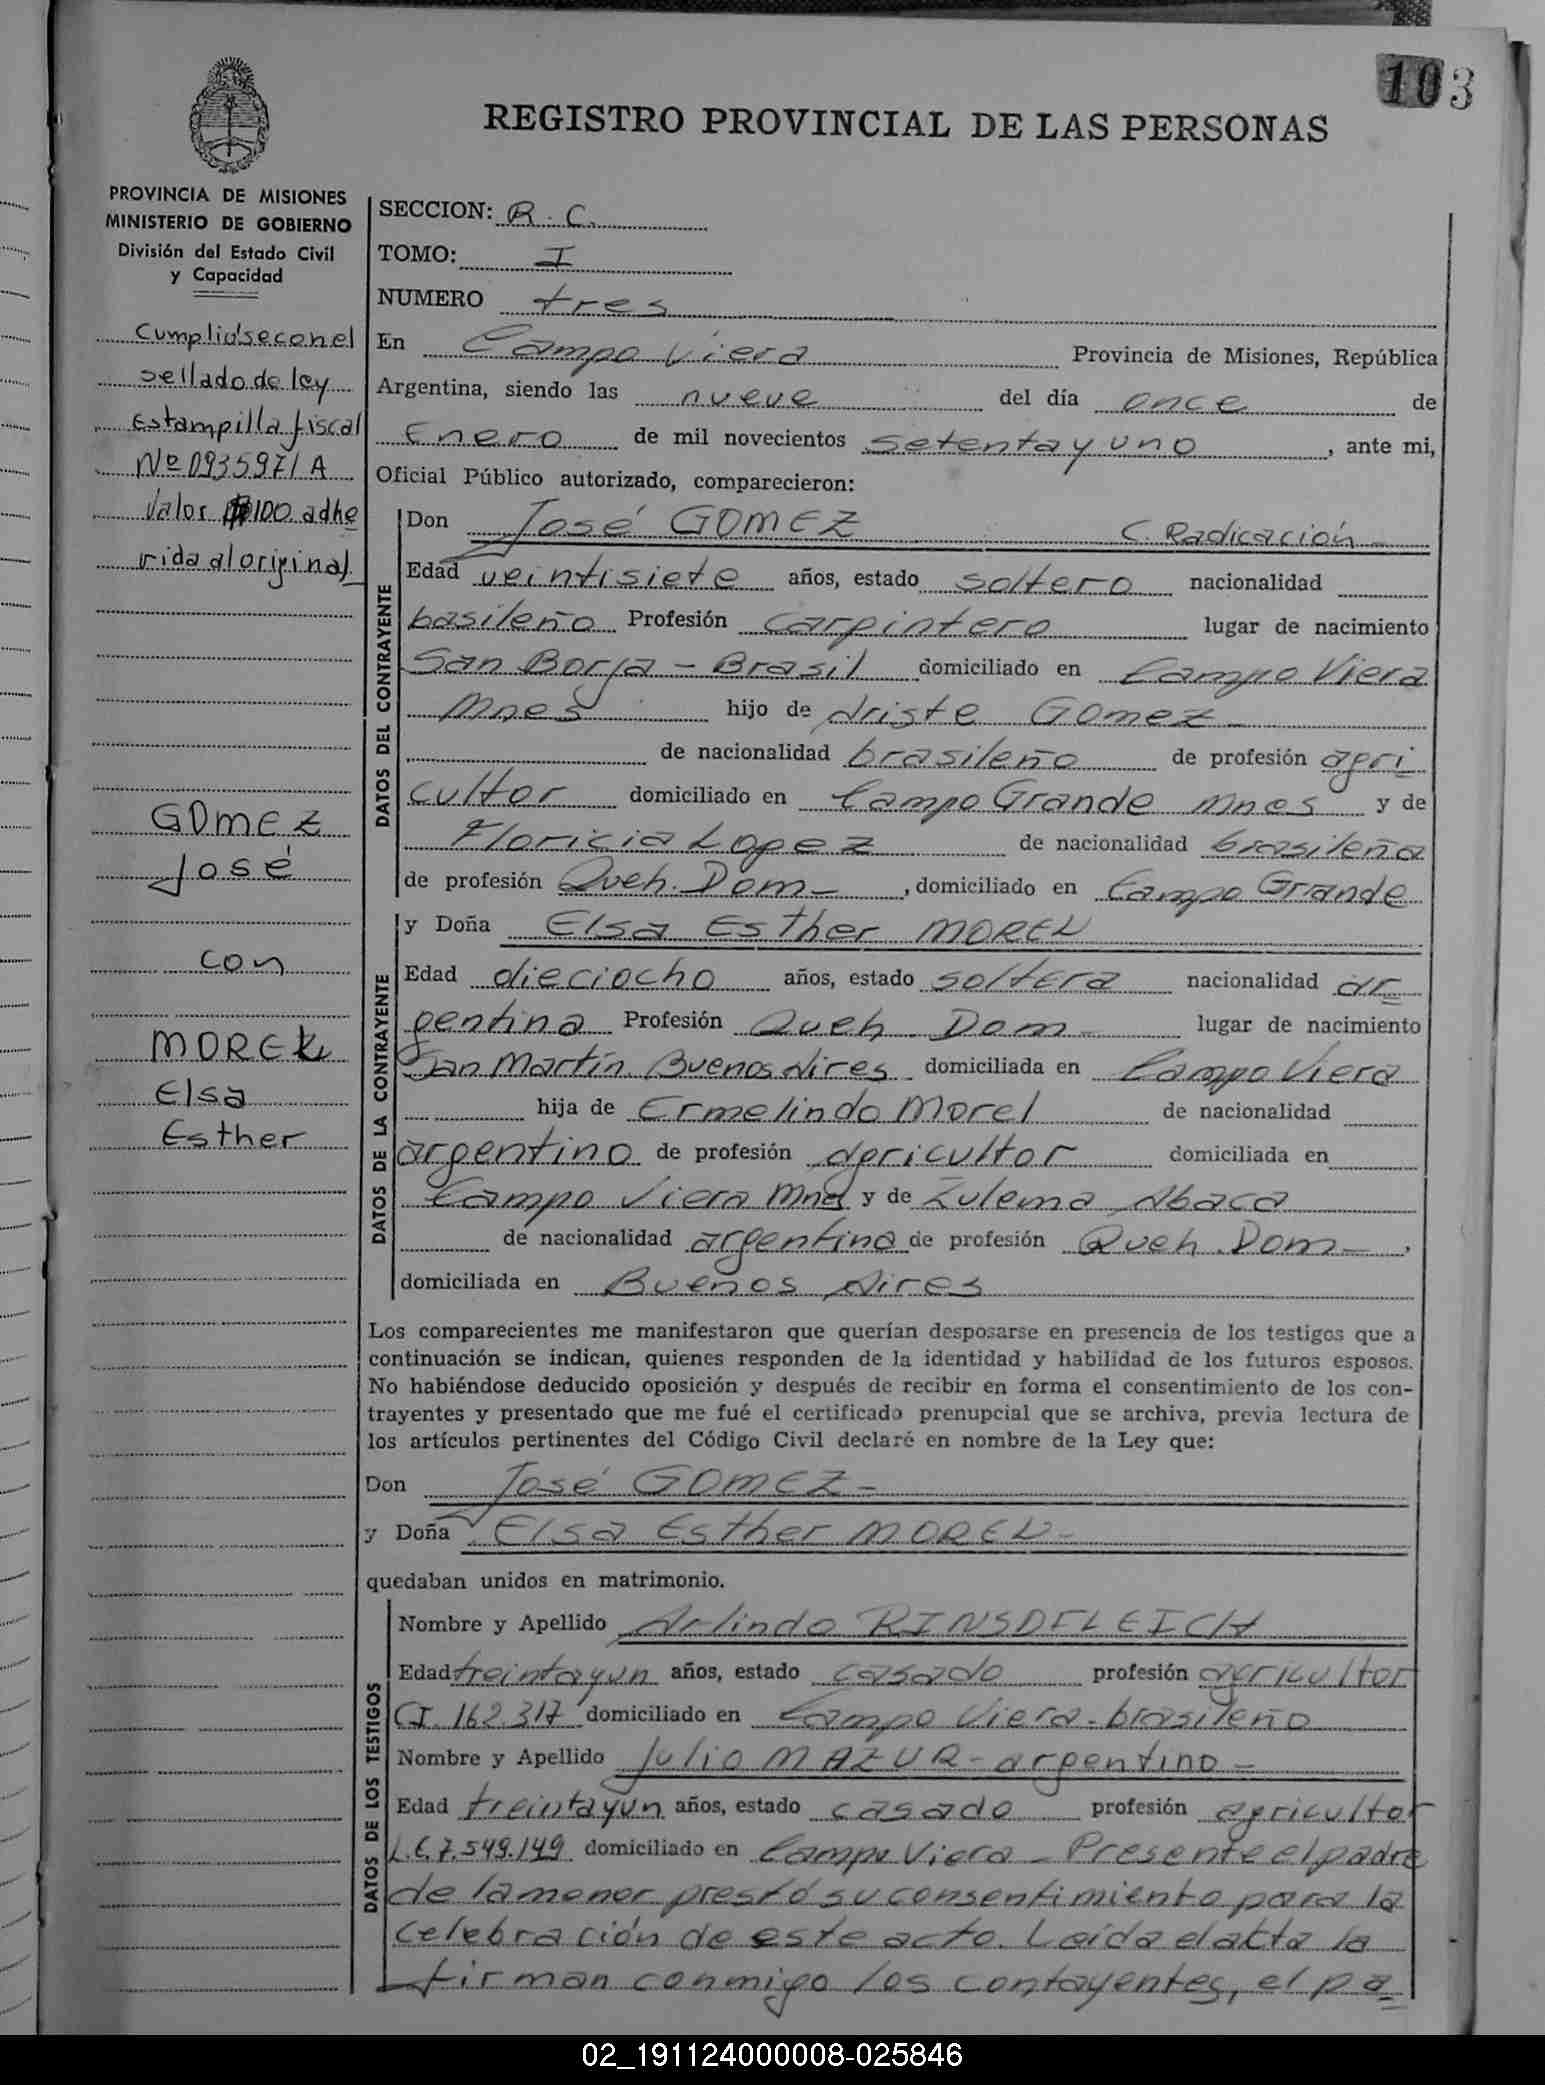 103
REGISTRO PROVINCIAL DE LAS PERSONAS
PROVINCIA DE MISIONES
MINISTERIO DE GOBIERNO
División del Estado Civil
y Capacidad
Cumplióse con el
sellado de ley
Estampilla fiscal
Nº 0935971 A
Valor $100 adhe
rida al original
GOMEZ
José
con
MOREL
Elsa
Esther
SECCION: R. C.
TOMO: I
NUMERO tres
En Campo Viera Provincia de Misiones, República
Argentina, siendo las nueve del día once de
Enero de mil novecientos setenta y uno, ante mi,
Oficial Público autorizado, comparecieron:
DATOS DEL CONTRAYENTE
Don José GOMEZ C. Radicación
Edad veintisiete años, estado soltero nacionalidad
basileño Profesión carpintero lugar de nacimiento
San Borja - Brasil domiciliado en Campo Viera
Mnes hijo de Ariste Gomez
de nacionalidad brasileño de profesión agri
cultor domiciliado en Campo Grande Mnes y de
Floricia Lopez de nacionalidad brasileña
de profesión Queh. Dom_, domiciliado en Campo Grande
DATOS DE LA CONTRAYENTE
y Doña Elsa Esther MOREL
Edad dieciocho años, estado soltera nacionalidad ar
gentina Profesión Queh Dom lugar de nacimiento
San Martín Buenos Aires domiciliada en Campo Viera
hija de Ermelindo Morel de nacionalidad
argentino de profesión agricultor domiciliada en
Campo Viera Mnes y de Zulema Abaca
de nacionalidad argentina de profesión Queh. Dom_,
domiciliada en Buenos Aires
Los comparecientes me manifestaron que querían desposarse en presencia de los testigos que a
continuación se indican, quienes responden de la identidad y habilidad de los futuros esposos.
No habiéndose deducido oposición y después de recibir en forma el consentimiento de los con-
trayentes y presentado que me fué el certificado prenupcial que se archiva, previa lectura de
los artículos pertinentes del Código Civil declaré en nombre de la Ley que:
Don José GOMEZ -
y Doña Elsa Esther MOREL -
quedaban unidos en matrimonio.
DATOS DE LOS TESTIGOS
Nombre y Apellido Arlindo RINSDFLEICH
Edad treintayun años, estado casado profesión agricultor
CI. 162.317 domiciliado en Campo Viera - brasileño
Nombre y Apellido Julio MAZUR - argentino -
Edad treintayun años, estado casado profesión agricultor
L.E. 7.549.149 domiciliado en Campo Viera - Presente el padre
de la menor prestó su consentimiento para la
celebración de este acto. Leída el akta la
firman conmigo los contayentes, el pa
02_191124000008-025846